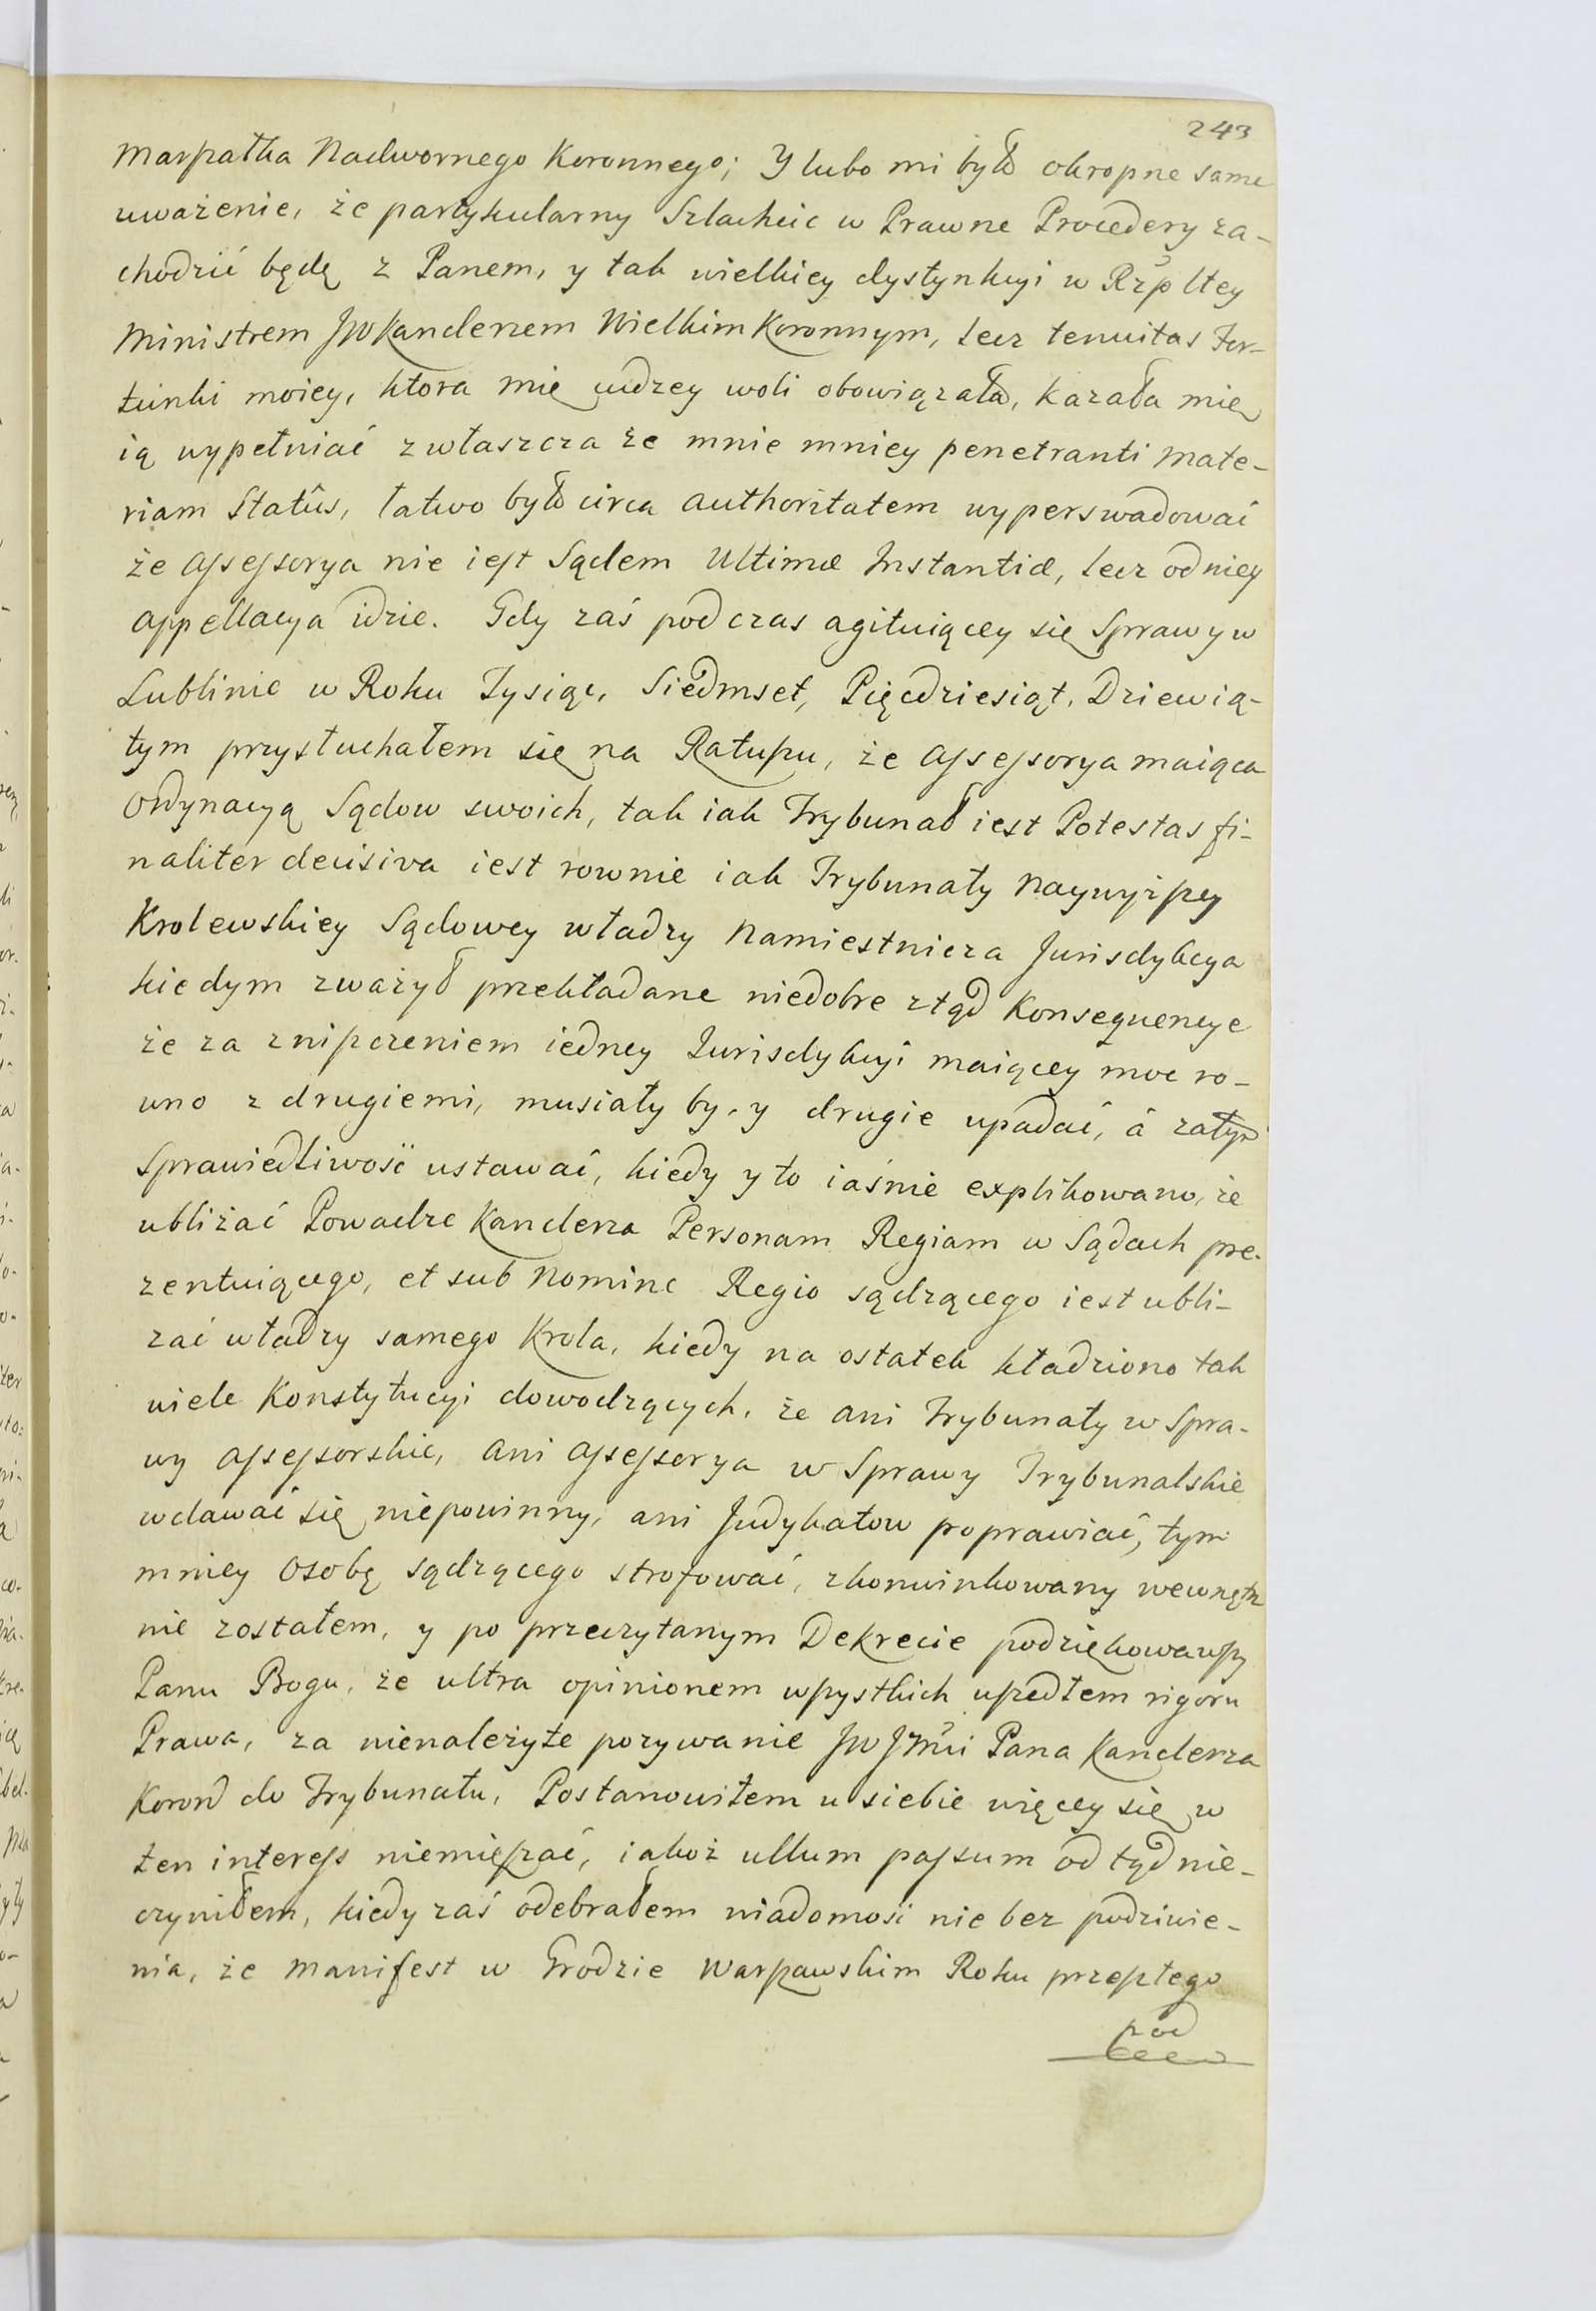 243
Marszałka Nadwornego Koronnego; Y lubo mi było okropne same
uważenie, że partykularny Szlachcic w Prawne Procedery za-
chodzić będę z Panem, y tak wielkiey dystynkcyi w Rzpltey
Ministrem JW Kanclerzem Wielkim Koronnym, lecz tenuitas For-
tunki moiey, ktora mię cudzey woli obowiązała, kazała mię
ią wypełniać zwłaszcza że mnie mniey penetranti Mate-
riam Statûs, łatwo było circa Authoritatem wyperswadować
że Assessorya nie iest Sądem Ultimæ Instantiæ, lecz od niey
Appellacya idzie. Gdy zaś podczas agituiącey się Sprawy w
Lublinie w Roku Tysiąc, Siedmset, Pięcdziesiąt, Dziewią-
tym przysłuchałem się na Ratuszu, że Assessorya maiąca
Ordynacyą Sądow swoich, tak iak Trybunał iest Potestas fi-
naliter decisiva iest rownie iak Trybunały Naywyższey
Krolewskiey Sądowey władzy Namiestnicza Jurisdykcya
kiedym zważył przekładane niedobre ztąd Konsequencye
że za zniszczeniem iedney Jurisdykcyi maiącey moc ro-
wno z drugiemi, musiały by, y drugie upadać, á zatym
Sprawiedliwość ustawać, kiedy y to iaśnie explikowano, że
ubliżać Powadze Kanclerza Personam Regiam w Sądach pre-
zentuiącego, et sub Nomine Regio sądzącego iest ubli-
zać władzy samego Krola, kiedy na ostatek kładziono tak
wiele Konstytucyi dowodzących, że Ani Trybunały w Spra-
wy Assessorskie, Ani Assessorya w Sprawy Trybunalskie
wdawać się niepowinny, ani Judykatow poprawiać, tym
mniey Osobę sądzącego strofować, zkonwinkowany wewnątrz
nie zostałem, y po przeczytanym Dekrecie podziękowawszy
Panu Bogu, że ultra opinionem wszystkich uszedłem rigoru
Prawa, za nienależyte pozywanie JW Jmći Pana Kanclerza
Koron do Trybunału, Postanowiłem u siebie więcey się w
ten interess niemięszać, iakoż ullum passum od tąd nie-
czyniłem, kiedy zaś odebrałem wiadomość nie bez podziwie-
nia, że Manifest w Grodzie Warszawskim Roku przeszłego
pod